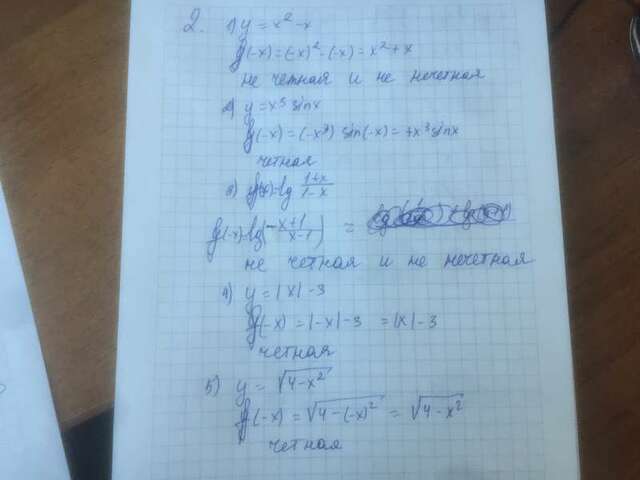 2. 1) y = x² - x
y(-x) = (-x)² - (-x) = x² + x
не четная и не нечетная
2) y = x³ sin x
y(-x) = (-x³) sin(-x) = +x³ sin x
четная
3) y(x) = lg (1+x)/(1-x)
y(-x) = lg(-(x+1)/(x-1)) =
не четная и не нечетная
4) y = |x| - 3
y(-x) = |-x| - 3 = |x| - 3
четная
5) y = √(4-x²)
y(-x) = √(4-(-x)²) = √(4-x²)
четная